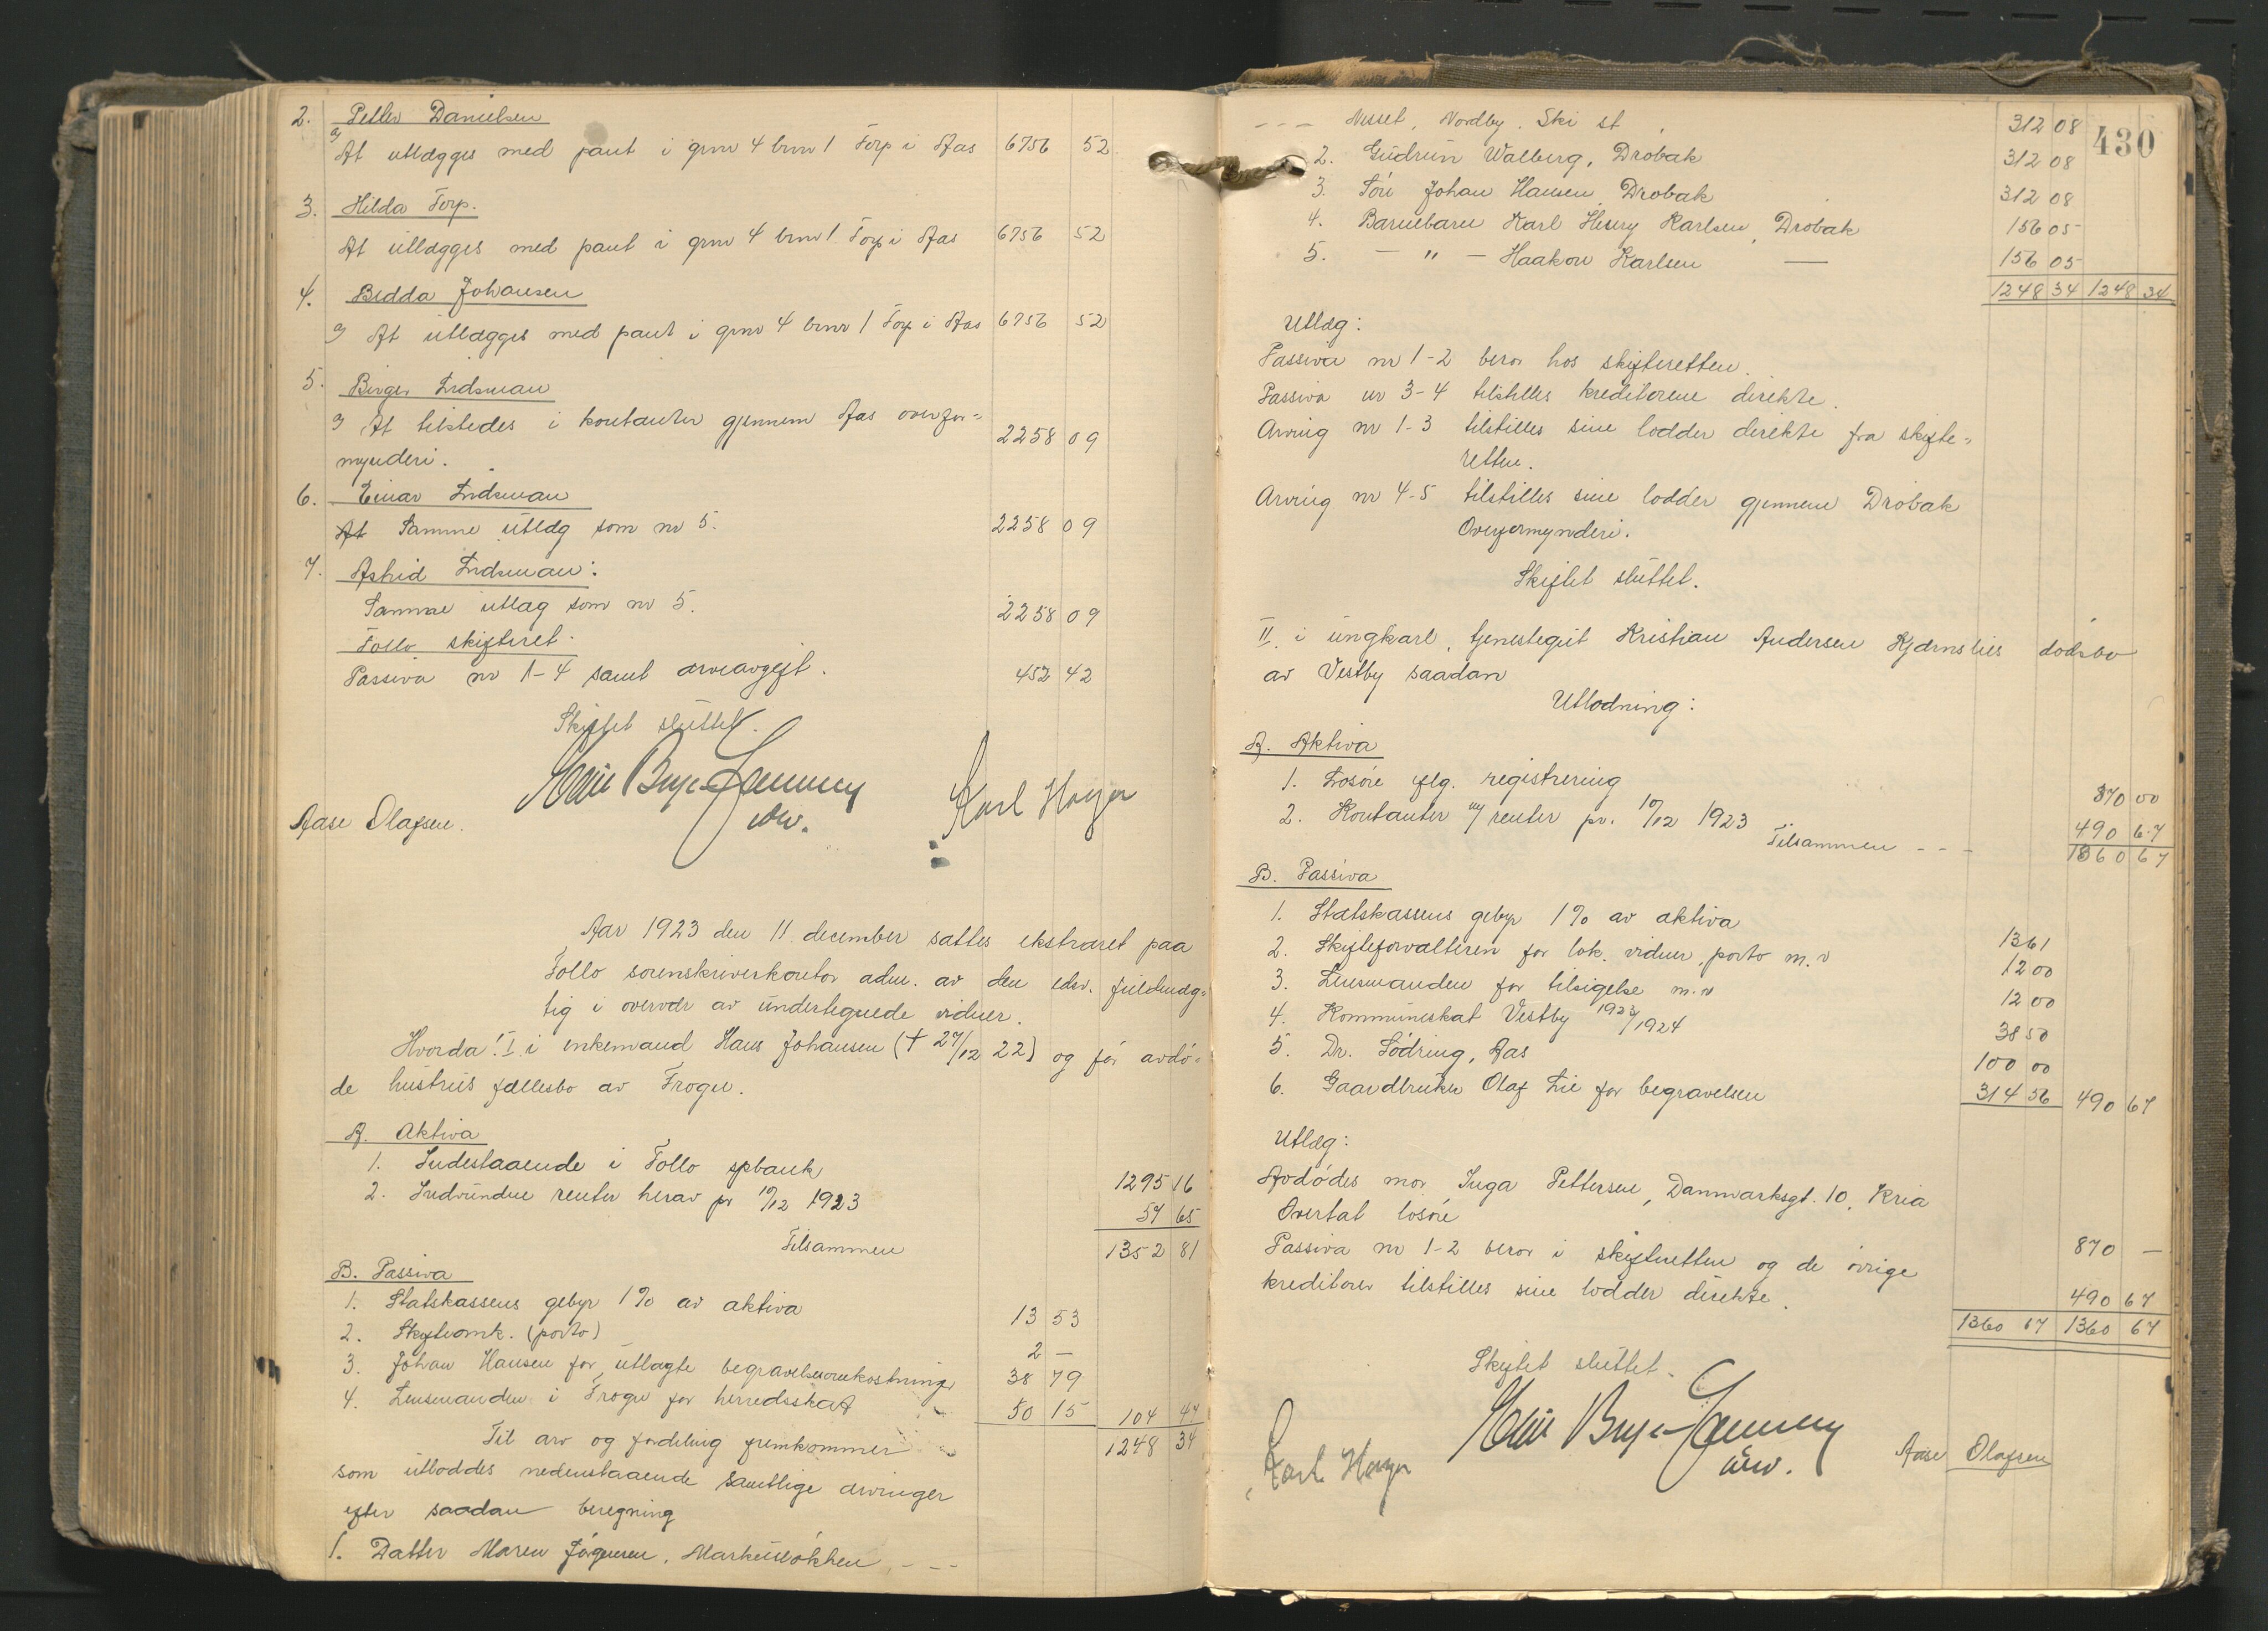 2. Petter Danielsen
At utlægges med pant i grnr 4 brnr 1 Torp i Aas 6756 52
3. Hilda Torp.
At utlægges med pant i grnr 4 brnr 1 Torp i Aas 6756 52
4. Bedda Johansen
At utlægges med pant i grnr 4 brnr 1 Torp i Aas 6756 52
5. Birger Lidsman
At tilstedes i kontanter gjennem Aas overfor=
mynderi. 2258 09
6. Einar Lidsman
At Samme utlæg som nr 5. 2258 09
7. Astrid Lidsman:
Samme utlæg som nr 5. 2258 09
Follo skifteret.
Passiva nr 1-4 samt arveavgift. 452 42
Skiftet sluttet.
Aase Olafsen.
edsv.
Karl Høyer
Aar 1923 den 11 december sattes ekstraret paa
Follo sorenskriverkontor adm. av den edsv. fuldmæg=
tig i overvær av undertegnede vidner.
Hvorda: I. i enkemand Hans Johansen († 27/12 22) og før avdø=
de hustrus fællesbo av Frogn.
A. Aktiva
1. Indestaaende i Follo spbank 1295 16
2. Indvundne renter herav pr 10/12 1923 57 65
Tilsammen 1352 81
B. Passiva
1. Statskassens gebyr 1% av aktiva 13 53
2. Skifteomk. (porto) 2 —
3. Johan Hansen for utlagte begravelsesomkostninger 38 79
4. Lensmanden i Frogn for herredsskat 50 15 104 47
Til arv og fordeling fremkommer 1248 34
som utloddes nedenstaaende samtlige arvinger
efter saadan beregning
1. Datter Maren Jørgensen, Markusløkken - - -
430
- - - Nesset, Nordby. Ski st 312 08
2. Gudrun Walberg, Drøbak 312 08
3. Tøri Johan Hansen, Drøbak 312 08
4. Barnebarn Karl Henry Karlsen, Drøbak 156 05
5. — " — Haakon Karlsen — 156 05
1248 34 1248 34
Utlæg:
Passiva nr 1-2 beror hos skifteretten.
Passiva nr 3-4 tilstilles kreditorene direkte.
Arving nr 1-3 tilstilles sine lodder direkte fra skifte=
retten.
Arving nr 4-5 tilstilles sine lodder gjennem Drøbak
Overformynderi.
Skiftet sluttet.
II. i ungkarl, tjenestegut Kristian Andersen Kjærnslies dødsbo
av Vestby saadan
Utlodning:
A. Aktiva
1. Løsøre iflg. registrering 870 00
2. Kontanter m/ renter pr. 10/12 1923 490 67
Tilsammen - - - 1360 67
B. Passiva
1. Statskassens gebyr 1% av aktiva 13 61
2. Skifteforvalteren for lok. vidner, porto m.v 12 00
3. Lensmanden for tilsigelse m.v 12 00
4. Kommuneskat Vestby 1923/1924 38 50
5. Dr. Sødring, Aas 100 00
6. Gaardbruker Olaf Lie for begravelsen 314 56 490 67
Utlæg:
Avdødes mor Inga Pettersen, Danmarksgt. 10, Kria
Overtat løsøre 870 —
Passiva nr 1-2 beror i skifteretten og de øvrige
kreditorer tilstilles sine lodder direkte. 490 67
1360 67 1360 67
Skiftet sluttet.
Karl Høyer
edsv.
Aase Olafsen